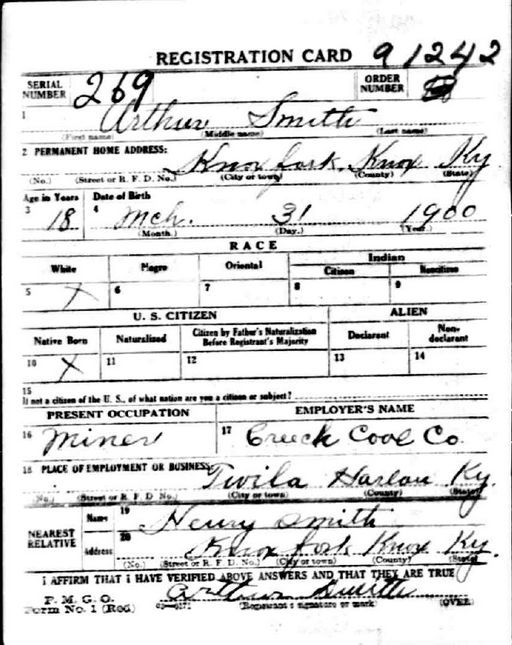 REGISTRATION CARD 91242
SERIAL NUMBER 269 ORDER NUMBER
1 Arthur Smith
(First name) (Middle name) (Last name)
2 PERMANENT HOME ADDRESS: Knox fork Knox Ky
(No.) (Street or R. F. D. No.) (City or town) (County) (State)
Age in Years Date of Birth
3 18 4 Mch. 31 1900
(Month.) (Day.) (Year.)
RACE
White Negro Oriental Indian
Citizen Noncitizen
5 X 6 7 8 9
U. S. CITIZEN ALIEN
Native Born Naturalized Citizen by Father's Naturalization Before Registrant's Majority Declarant Non-declarant
10 X 11 12 13 14
15
If not a citizen of the U. S., of what nation are you a citizen or subject?
PRESENT OCCUPATION EMPLOYER'S NAME
16 Miner 17 Creech Coal Co.
18 PLACE OF EMPLOYMENT OR BUSINESS: Twila Harlan Ky.
(No.) (Street or R. F. D. No.) (City or town) (County) (State)
NEAREST RELATIVE Name 19 Henry Smith
Address 20 Knox fork Knox Ky.
(No.) (Street or R. F. D. No.) (City or town) (County) (State)
I AFFIRM THAT I HAVE VERIFIED ABOVE ANSWERS AND THAT THEY ARE TRUE
P. M. G. O. Arthur Smith
Form No. 1 (Red) (Registrant's signature or mark) (OVER)